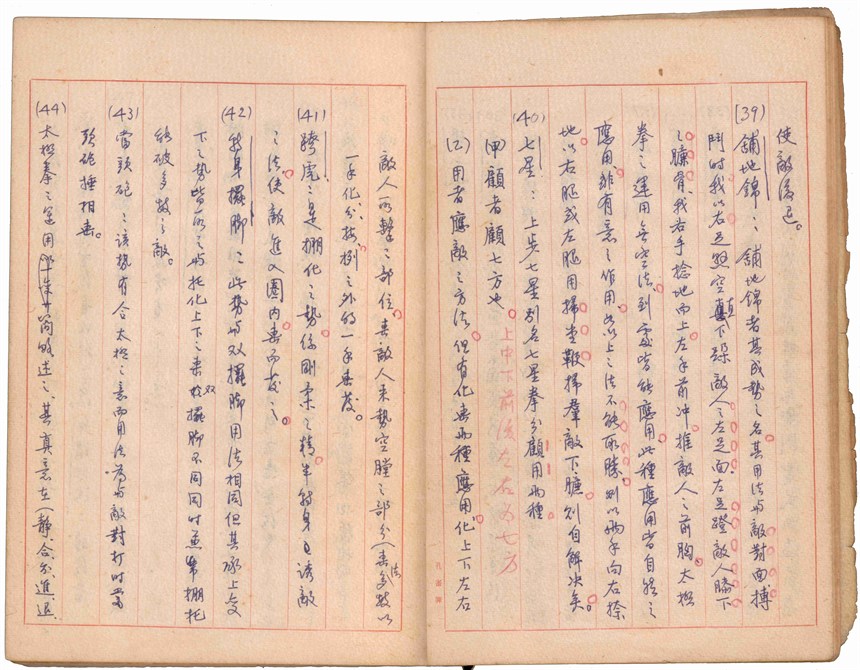 使敵後退。
(39) 鋪地錦：：鋪地錦者其成勢之名其用法与敵對面搏
鬥時我以右足懸空直下踩敵人之左足面左足蹬敵人膝下
之臁骨我右手捻地而上左手前冲推敵人之前胸太極
拳之運用無空法到處皆能應用此種應用皆自然之
應用非有意之作用如以上之法不能取勝則以兩手向右捺
地以右腿或左腿用掃堂鞭掃羣敵下臁則自解决矣。
(40) 七星：：上步七星别名七星拳分顧用兩種
(甲) 顧者顧七方也 上中下前後左右为七方
(乙) 用者應敵之方法但有化击兩種應用化上下左右
敵人所擊之部位击敵人来勢空膛之部分(击法多数以
一手化分按挒之外的一手击发。
(41) 跨虎：是掤化之勢係剛柔之精半轉身勾誘敵
之法使敵進入圈内击而发之
(42) 轉身擺脚：此勢与双擺脚用法相同但其承上变
下之勢皆所之与托化上下之来於双擺脚不同同时兼带掤托
能破多数之敵。
(43) 當頭砲：該勢有合太極之意而用法为与敵對打时當
頭砲捶相击。
(44) 太極拳之运用簡畧述之、其真意在(靜合分進退